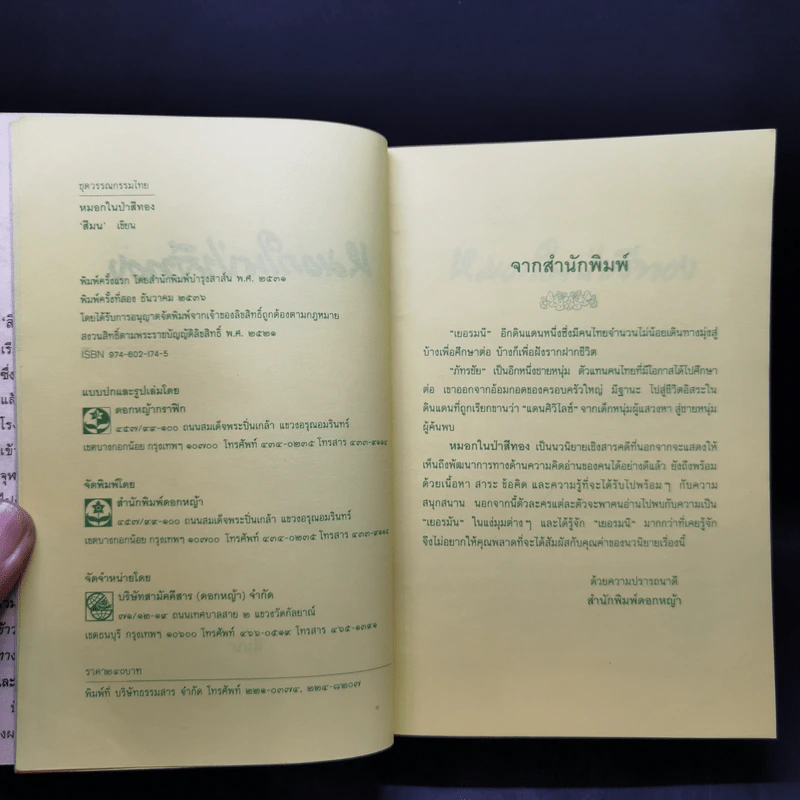 ชุดวรรณกรรมไทย
หมอกในป่าสีทอง
'สีมน' เขียน
พิมพ์ครั้งแรก โดยสำนักพิมพ์บำรุงสาส์น พ.ศ. ๒๕๓๑
พิมพ์ครั้งที่สอง ธันวาคม ๒๕๓๖
โดยได้รับการอนุญาตจัดพิมพ์จากเจ้าของลิขสิทธิ์ถูกต้องตามกฎหมาย
สงวนสิทธิ์ตามพระราชบัญญัติลิขสิทธิ์ พ.ศ. ๒๕๒๑
ISBN 974-602-174-5
แบบปกและรูปเล่มโดย
ดอกหญ้ากราฟิก
๔๕๗/๙๙-๑๐๐ ถนนสมเด็จพระปิ่นเกล้า แขวงอรุณอมรินทร์
เขตบางกอกน้อย กรุงเทพฯ ๑๐๗๐๐ โทรศัพท์ ๔๓๔-๐๒๓๕ โทรสาร
จัดพิมพ์โดย
สำนักพิมพ์ดอกหญ้า
๔๕๗/๙๙-๑๐๐ ถนนสมเด็จพระปิ่นเกล้า แขวงอรุณอมรินทร์
เขตบางกอกน้อย กรุงเทพฯ ๑๐๗๐๐ โทรศัพท์ ๔๓๔-๐๒๓๕ โทรสาร
จัดจำหน่ายโดย
บริษัทสามัคคีสาร (ดอกหญ้า) จำกัด
๗๑/๑๒-๑๙ ถนนเทศบาลสาย ๒ แขวงวัดกัลยาณ์
เขตธนบุรี กรุงเทพฯ ๑๐๖๐๐ โทรศัพท์ ๔๖๖-๐๕๑๙ โทรสาร ๔๖๕-๑๓๙๑
ราคา ๒๔๐บาท
พิมพ์ที่ บริษัทธรรมสาร จำกัด โทรศัพท์ ๒๒๑-๐๓๗๔, ๒๒๔-๘๒๐๗
จากสำนักพิมพ์
"เยอรมนี" อีกดินแดนหนึ่งซึ่งมีคนไทยจำนวนไม่น้อยเดินทางมุ่งสู่
บ้างเพื่อศึกษาต่อ บ้างก็เพื่อฝังรากฝากชีวิต
"ภัทรชัย" เป็นอีกหนึ่งชายหนุ่ม ตัวแทนคนไทยที่มีโอกาสได้ไปศึกษา
ต่อ เขาออกจากอ้อมกอดของครอบครัวใหญ่ มีฐานะ ไปสู่ชีวิตอิสระใน
ดินแดนที่ถูกเรียกขานว่า "แดนศิวิไลซ์" จากเด็กหนุ่มผู้แสวงหา สู่ชายหนุ่ม
ผู้ค้นพบ
หมอกในป่าสีทอง เป็นนวนิยายเชิงสารคดีที่นอกจากจะแสดงให้
เห็นถึงพัฒนาการทางด้านความคิดอ่านของคนได้อย่างดีแล้ว ยังถึงพร้อม
ด้วยเนื้อหา สาระ ข้อคิด และความรู้ที่จะได้รับไปพร้อมๆ กับความ
สนุกสนาน นอกจากนี้ตัวละครแต่ละตัวจะพาคนอ่านไปพบกับความเป็น
"เยอรมัน" ในแง่มุมต่างๆ และได้รู้จัก "เยอรมนี" มากกว่าที่เคยรู้จัก
จึงไม่อยากให้คุณพลาดที่จะได้สัมผัสกับคุณค่าของนวนิยายเรื่องนี้
ด้วยความปรารถนาดี
สำนักพิมพ์ดอกหญ้า